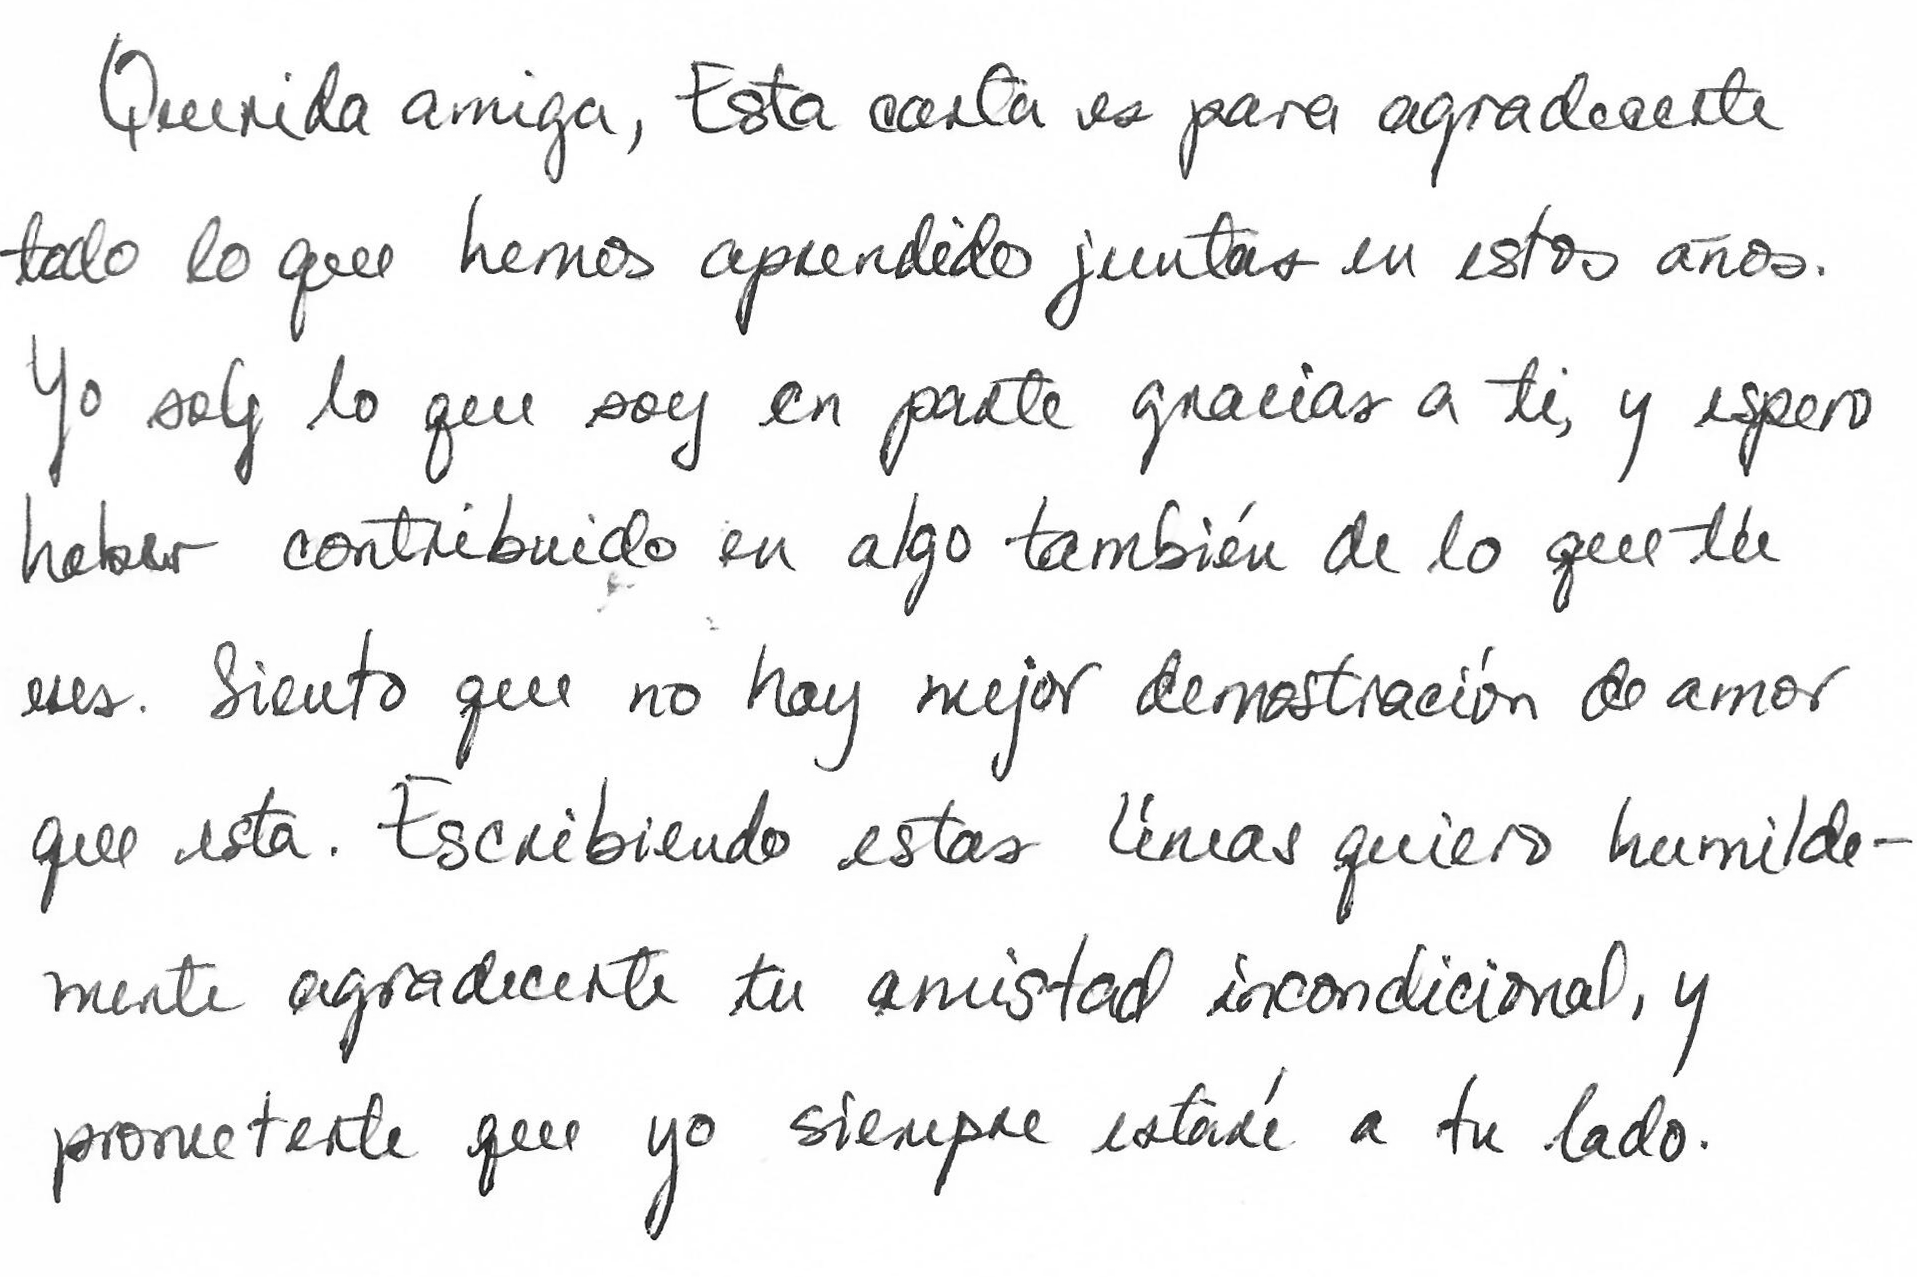 Querida amiga, Esta carta es para agradecerte
todo lo que hemos aprendido juntas en estos años.
Yo soy lo que soy en parte gracias a ti, y espero
haber contribuido en algo también de lo que tú
eres. Siento que no hay mejor demostración de amor
que esta. Escribiendo estas líneas quiero humilde-
mente agradecerte tu amistad incondicional, y
prometerte que yo siempre estaré a tu lado.